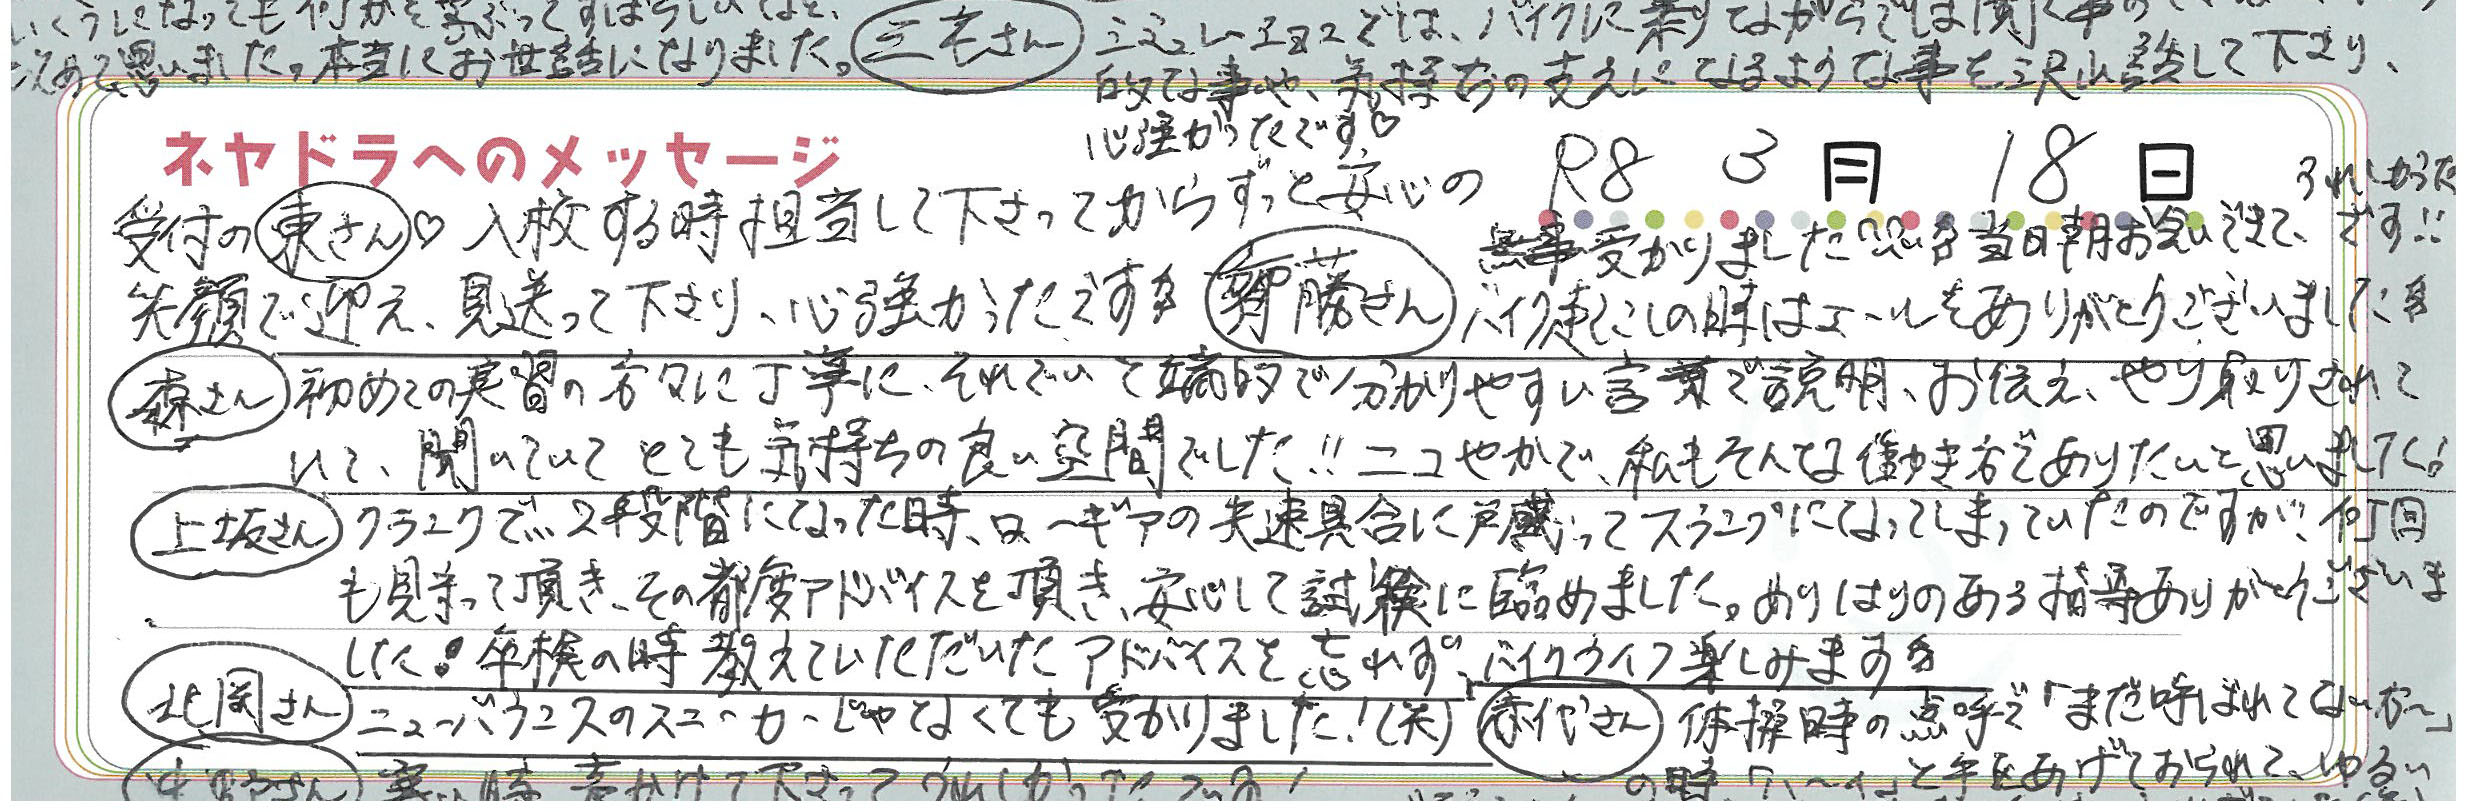 いくつになっても何かを学ぶってすばらしいなと、
思いました。本当にお世話になりました。
三宅さん
シミュレーションでは、バイクに乗りながらでは聞く事の
的な事や、気持ちの支えになるような事を沢山話して下さり、
心強かったです♡
ネヤドラへのメッセージ
R8 3月18日
受付の東さん♡入校する時担当して下さってからずっと安心の
笑顔で迎え、見送って下さり、心強かったです
齊藤さん
無事受かりました 当日朝お会いできて、うれしかったです!!
バイク起こしの時はエールをありがとうございました
森さん
初めての実習の方々に丁寧に、それでいて端的で分かりやすい言葉で説明、お伝え、やり取りされて
いて、聞いていてとても気持ちの良い空間でした!!ニコやかで、私もそんな働き方でありたいと思いました!
上坂さん
クランクで、2段階になった時、ローギアの失速具合に戸惑ってスランプになってしまっていたのですが、何回
も見守って頂き、その都度アドバイスを頂き、安心して試験に臨めました。めりはりのある指導ありがとうございま
した!卒検の時教えていただいたアドバイスを忘れず、バイクライフ楽しみます
北岡さん
ニューバランスのスニーカーじゃなくても受かりました!(笑)
赤代さん
体操時の点呼で「まだ呼ばれてない方〜」
の時「ハーイ」と手をあげておられて、ゆるい
寒い時声かけて下さってうれしかったです!